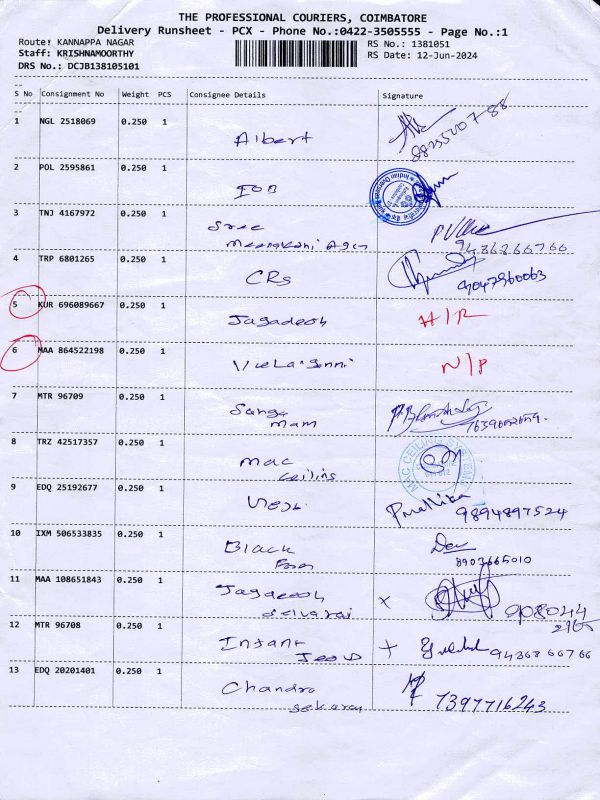 THE PROFESSIONAL COURIERS, COIMBATORE
Delivery Runsheet - PCX - Phone No.:0422-3505555 - Page No.:1
Route: KANNAPPA NAGAR RS No.: 1381051
Staff: KRISHNAMOORTHY RS Date: 12-Jun-2024
DRS No.: DCJB138105101
S No Consignment No Weight PCS Consignee Details Signature
1 NGL 2518069 0.250 1
Albert
2 POL 2595861 0.250 1
IOB
3 TNJ 4167972 0.250 1
Sree
4 TRP 6801265 0.250 1
CRS 9047960063
5 KUR 696089667 0.250 1
Jagadeesh
6 MAA 864522198 0.250 1
N/P
7 MTR 96709 0.250 1
Sanga
mam
8 TRZ 42517357 0.250 1
Mac
Ceilins
9 EDQ 25192677 0.250 1
9894897524
10 IXM 506533835 0.250 1
Black Dev
8903665010
11 MAA 108651843 0.250 1
Jagadeesh
Selvaraj
12 MTR 96708 0.250 1
Infant
Jesus
13 EDQ 20201401 0.250 1
Chandra
Sekaran 7397716243